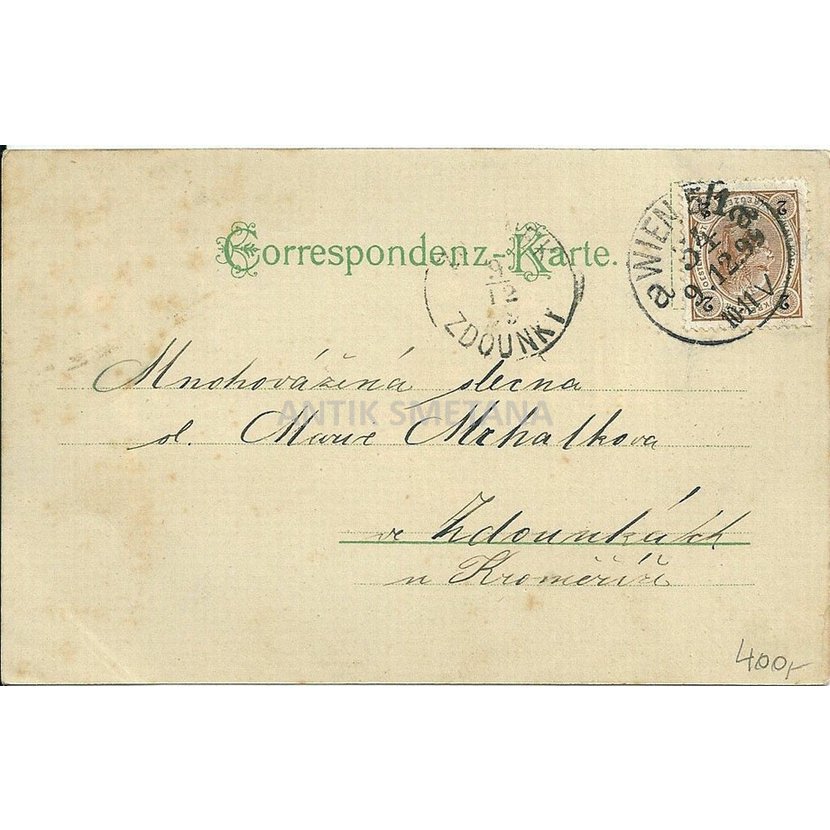 Correspondenz-Karte.
WIEN 1/1
54
9 12.98
10-11V
a
ZDOUNKY
Mnohovážená slečna
sl. Marie Mrhalkova
ve Zdounkách
u Kroměříže
400,-
ANTIK SMETANA